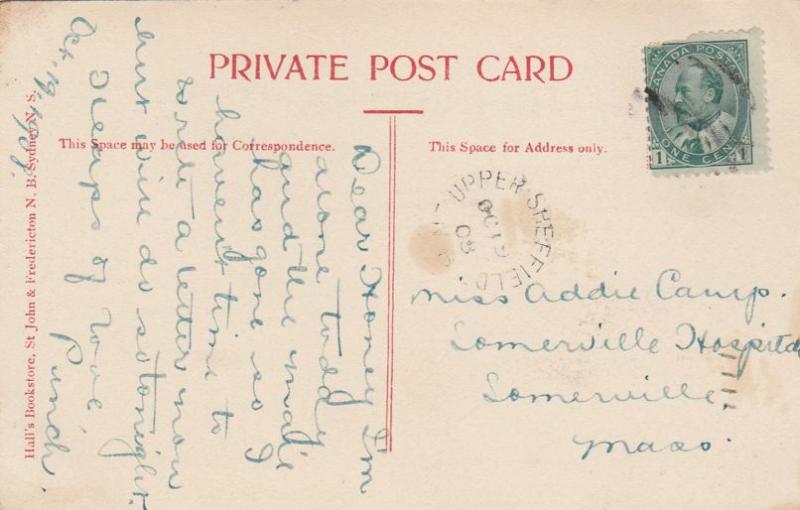 PRIVATE POST CARD
This Space may be used for Correspondence.
This Space for Address only.
CANADA POSTAGE
ONE CENT
1 1
UPPER SHEFFIELD
OC 19
08
Miss Addie Camp.
Somerville Hospital
Somerville,
Mass.
Dear Honey I'm
alone today
and the mail
has gone so I
haven't time to
write a letter now
but will do so tonight
Heaps of love
Punch.
Oct. 19,
Hall's Bookstore, St John & Fredericton N. B. Sydney N. S.